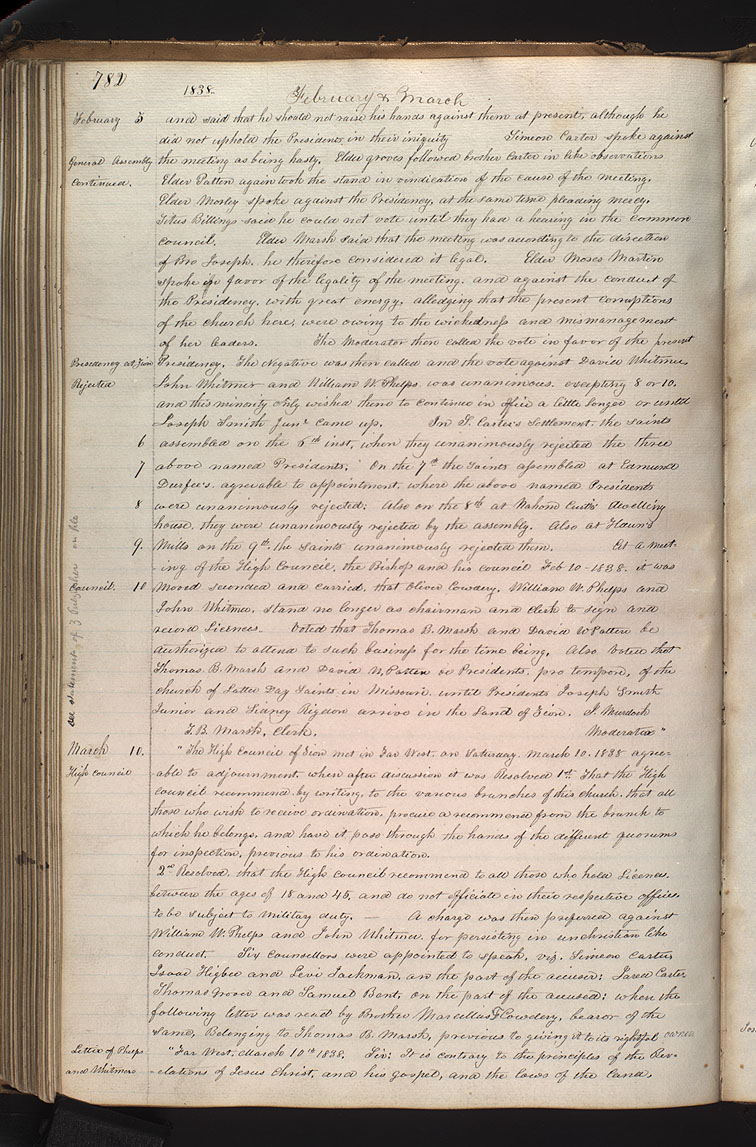 782
1838.
February & March
February 5 and said that he should not raise his hands against them at present, although he
did not uphold the Presidents in their iniquity Simeon Carter spoke against
General Assembly the meeting as being hasty. Elder groves followed brother Carter in like observations
Continued. Elder Patten again took the stand in vindication of the cause of the meeting.
Elder Morley spoke against the Presidency, at the same time pleading mercy.
Titus Billings said he could not vote until they had a hearing in the common
council. Elder Marsh said that the meeting was according to the direction
of Bro Joseph, he therefore considered it legal. Elder Moses Martin
spoke in favor of the legality of the meeting, and against the conduct of
the Presidency, with great energy, alledging that the present corruptions
of the church here, were owing to the wickedness and mismanagement
of her leaders. The Moderator then called the vote in favor of the present
Presidency at Zion Presidency. The Negative was then called and the vote against David Whitmer
Rejected John Whitmer and William W. Phelps was unanimous, excepting 8 or 10,
and this minority only wished them to continue in office a little longer or until
Joseph Smith Junr came up. In S. Carter's Settlement, the saints
6 assembled on the 6th inst, when they unanimously rejected the three
7 above named Presidents. On the 7th the Saints assembled at Edmund
Durfee's, agreeable to appointment, where the above named Presidents
8 were unanimously rejected; Also on the 8th at Nahom Curtis Dwelling
house, they were unanimously rejected by the assembly. Also at Hawn's
9. Mills on the 9th, the saints unanimously rejected them. At a meet-
-ing of the High Council, the Bishop and his council Feb 10-1838, it was
Council. 10 Moved seconded and carried, that Oliver Cowdery, William W. Phelps and
John Whitmer, stand no longer as chairman and clerk to sign and
record Licences. Voted that Thomas B. Marsh and David W Patten be
authorized to attend to such business for the time being. Also Voted that
Thomas B. Marsh and David W. Patten be Presidents, pro tempore, of the
church of Latter Day Saints in Missouri, until Presidents Joseph Smith
Junior and Sidney Rigdon arrive in the Land of Zion. J. Murdock
T. B. Marsh, Clerk. Moderator"
see statement of 3 on file
March 10. "The High Council of Zion met in Far West, on Saturday, March 10. 1838 agree-
High Council able to adjournment, when after discussion it was Resolved 1st That the High
Council recommend by writing, to the various branches of this church, that all
those who wish to receive ordination, procure a recommend from the branch to
which he belongs, and have it pass through the hands of the different quorums
for inspection, previous to his ordination.
2nd Resolved, that the High Council recommend to all those who hold Licences,
between the ages of 18 and 45, and do not officiate in their respective offices,
to be subject to Military duty. — A charge was then preferred against
William W. Phelps and John Whitmer, for persisting in unchristian like
conduct. Six Counsellors were appointed to speak, viz. Simeon Carter,
Isaac Higbee and Levi Jackman, on the part of the accuser; Jared Carter
Thomas Grover and Samuel Bent, on the part of the accused; when the
following letter was read by Brother Marcellus F Cowdery, bearer of the
same, Belonging to Thomas B. Marsh, previous to giving it to its rightful owner
Letter of Phelps "Far West, March 10th 1838. Sir: It is contrary to the principles of the Rev-
and Whitmer -elations of Jesus Christ, and his gospel, and the laws of the land,